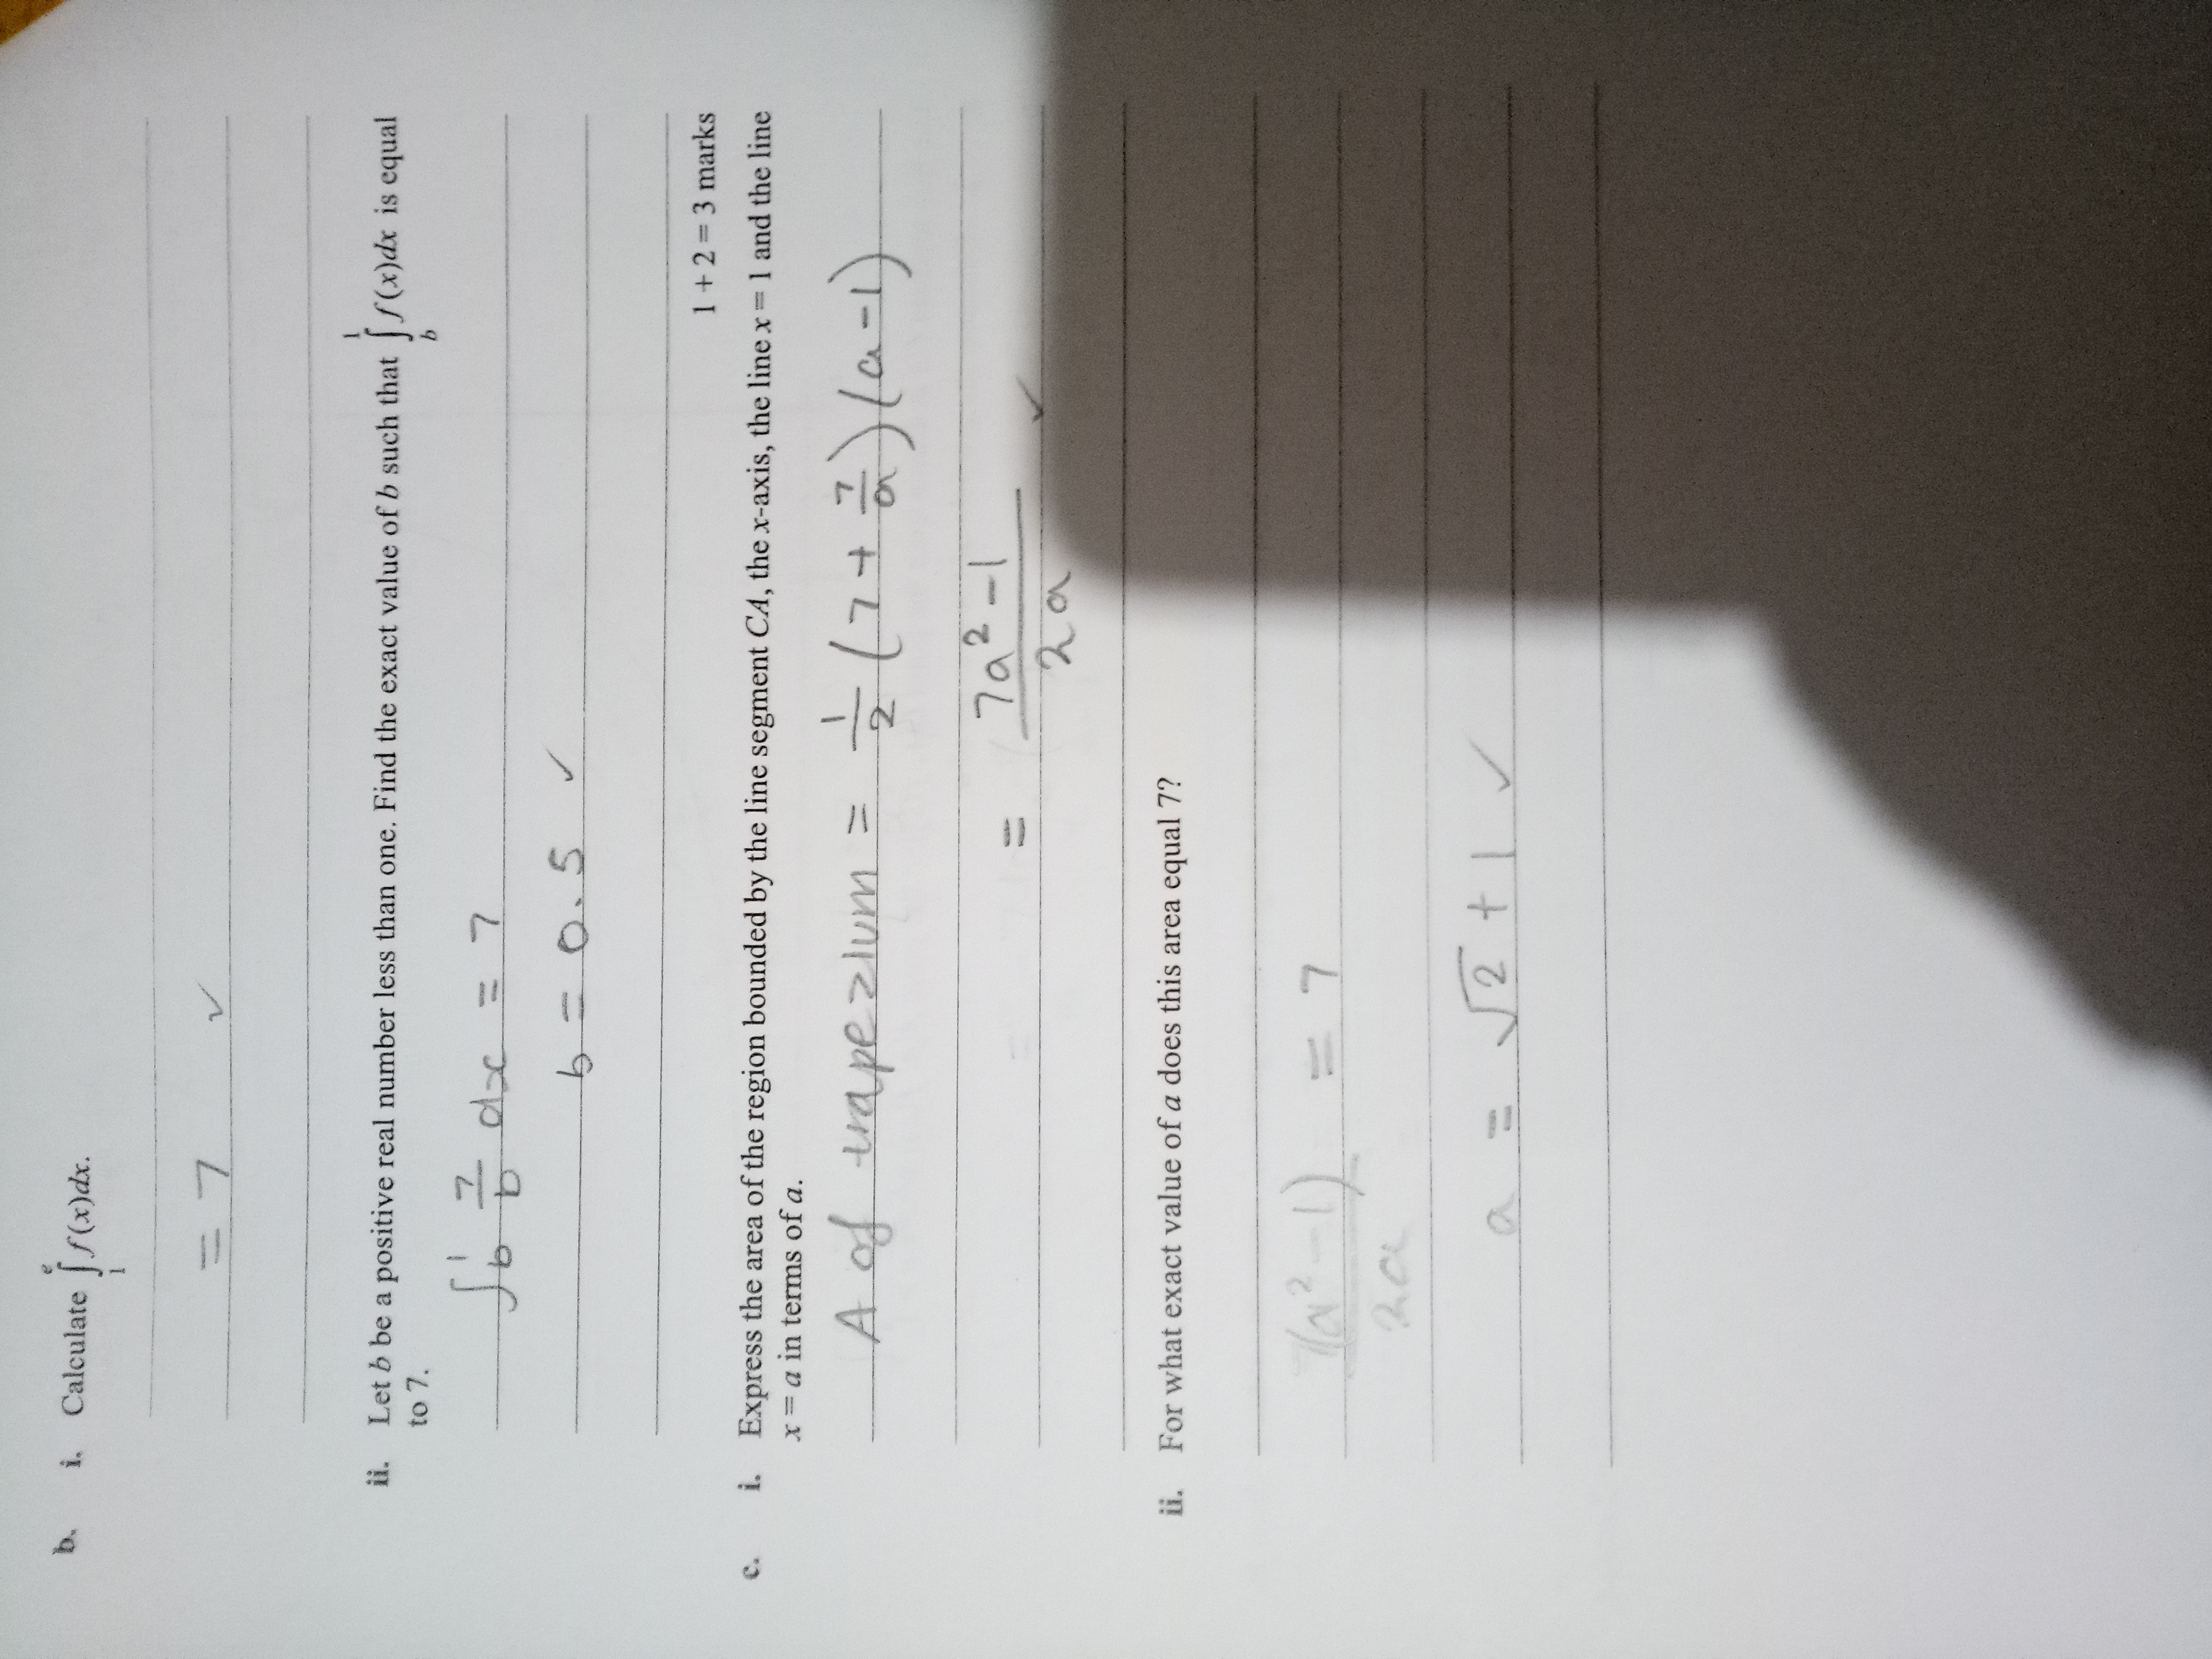 b. i. Calculate ∫₁ᵉ f(x)dx.
= 7 ✓
ii. Let b be a positive real number less than one. Find the exact value of b such that ∫_b^1 f(x)dx is equal
to 7.
∫_b^1 7/b dx = 7
b = 0.5 ✓
1 + 2 = 3 marks
c. i. Express the area of the region bounded by the line segment CA, the x-axis, the line x = 1 and the line
x = a in terms of a.
A of trapezium = 1/2 (7 + 7/a)(a-1)
= 7a²-1 / 2a ✓
ii. For what exact value of a does this area equal 7?
7(a²-1) / 2a = 7
a = √2 + 1 ✓